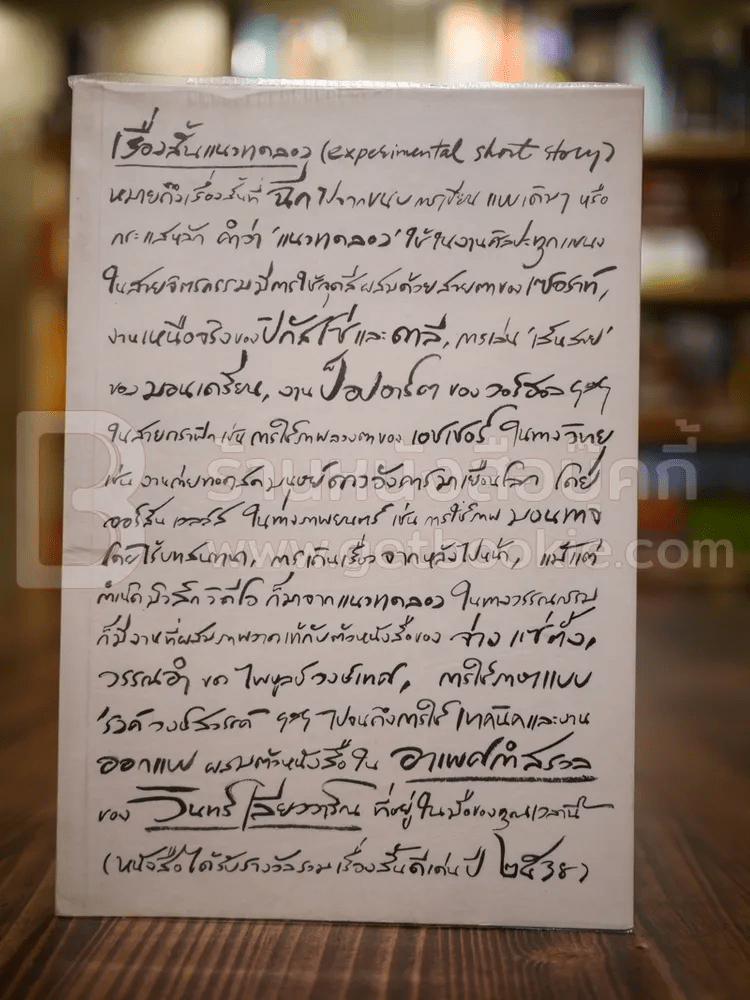 เรื่องสั้นแนวทดลอง (experimental short story)
หมายถึงเรื่องสั้นที่ ฉีกไปจากขนบการเขียน แบบเดิมๆ หรือ
กระแสหลัก คำว่า 'แนวทดลอง' ใช้ในงานศิลปะทุกแขนง
ในสายจิตรกรรมมีการใช้จุดสีผสมด้วยสายตาของเซอราท์,
งานเหนือจริงของปิกัสโซ่และดาลี, การเล่น 'เส้นสาย'
ของ มอนเดรียน, งานป็อปอาร์ต ของ วอร์ฮอล ฯลฯ
ในสายกราฟิก เช่น การใช้ภาพลวงตาของ เอชเชอร์ ในทางวิทยุ
เช่น งานถ่ายทอดสดมนุษย์ดาวอังคารมาเยือนโลก โดย
ออร์สัน เวลล์ส ในทางภาพยนตร์ เช่น การใช้ภาพ มอนทาจ
โดยไร้บทสนทนา, การเดินเรื่องจากหลังไปหน้า, แม้แต่
กำเนิดมิวสิกวิดีโอ ก็มาจากแนวทดลอง ในทางวรรณกรรม
ก็มีงานที่ผสมภาพวาดเข้ากับตัวหนังสือของ จ่าง แซ่ตั้ง,
วรรณอำ ของ ไพบูลย์ วงษ์เทศ, การใช้ภาษาแบบ
'รงค์ วงษ์สวรรค์ ฯลฯ ไปจนถึงการใช้ เทคนิคและงาน
ออกแบบ ผสมตัวหนังสือใน อาเพศกำสรวล
ของ วินทร์ เลียววาริณ ที่อยู่ในมือของคุณเวลานี้
(หนังสือได้รับรางวัลรวมเรื่องสั้นดีเด่นปี ๒๕๓๘)
B ร้านหนังสือบุ๊คกี้
www.getbookie.com